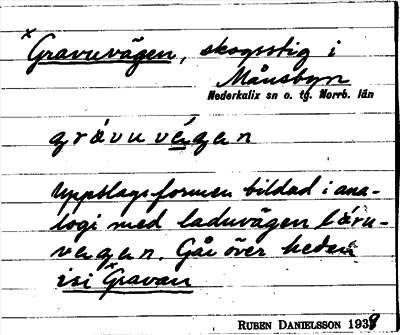 ×Gravuvägen, skogsstig i
Månsbyn
Nederkalix sn o. tg. Norrb. län
gràvuvé̱gen
Uppslagsformen bildad i ana-
logi med laduvägen làru-
vegen. Går över heden
isi ×Gravan
RUBEN DANIELSSON 1938